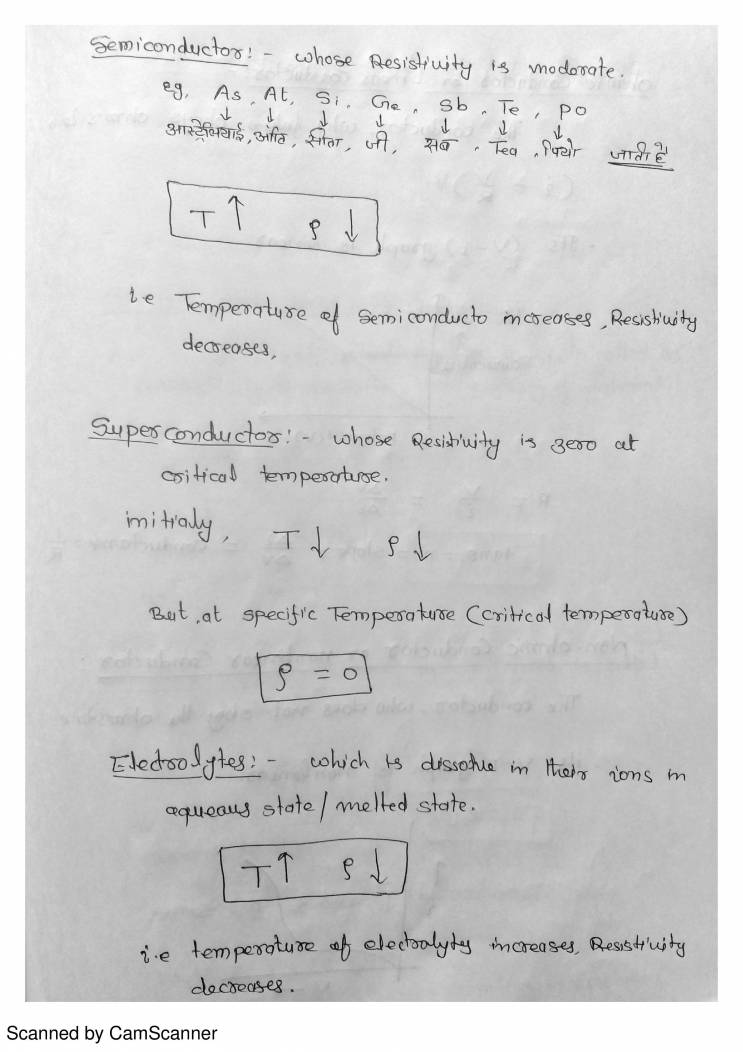 Semiconductor:- whose Resistivity is moderate.
eg, As, At, Si, Ge, Sb, Te, Po
↓ ↓ ↓ ↓ ↓ ↓ ↓
सीता, जी, सब, Tea, जाती है
T↑ ρ↓
i.e Temperature of Semiconducto increases, Resistivity
decreases,
Superconductor:- whose Resistivity is zero at
critical temperature.
initialy, T↓ ρ↓
But, at specific Temperature (critical temperature)
ρ = 0
Electrolytes:- which is dissolve in their ions in
aqueous state/melted state.
T↑ ρ↓
i.e temperature of electrolyty increases, Resistivity
decreases.
Scanned by CamScanner